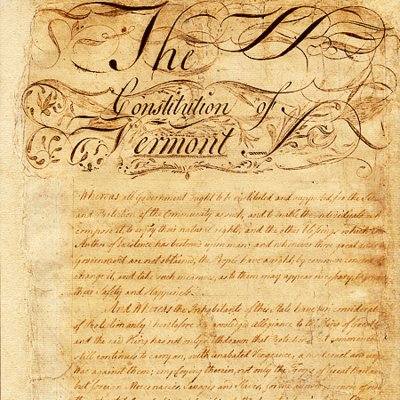 The
Constitution of
Vermont
Whereas all government ought to be instituted and supported for the
and Protection of the Community as such, and to enable the individuals who
compose it to enjoy their natural rights, and the other blessings which the
Author of Existence has bestowed upon man; and whenever those great ends of
government are not obtained, the People have a right, by common consent to
change it, and take such measures, as to them may appear necessary to promote
their Safety and Happiness.
And Whereas the Inhabitants of this State have, in consideration
of Protection only, heretofore acknowledged allegiance to the King of Great
and the said King has not only withdrawn that Protection, but commenced
still continues to carry on, with unabated Vengeance, a most cruel and unjust
War against them; employing therein, not only the Troops of Great Britain
but foreign Mercenaries, Savages and Slaves, for the avowed purpose of